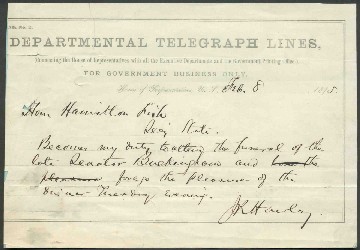 DEPARTMENTAL TELEGRAPH LINES,
Connecting the House of Representatives with all the Executive Departments and the Government Printing Office.
FOR GOVERNMENT BUSINESS ONLY.
House of Representatives, U. S., Feb. 8 1875.
Hon Hamilton Fish
Secy State.
Become my duty to attend the funeral of the
late Senator Buckingham and the
forego the pleasure of the
dinner Thursday evening.
J R Hawley